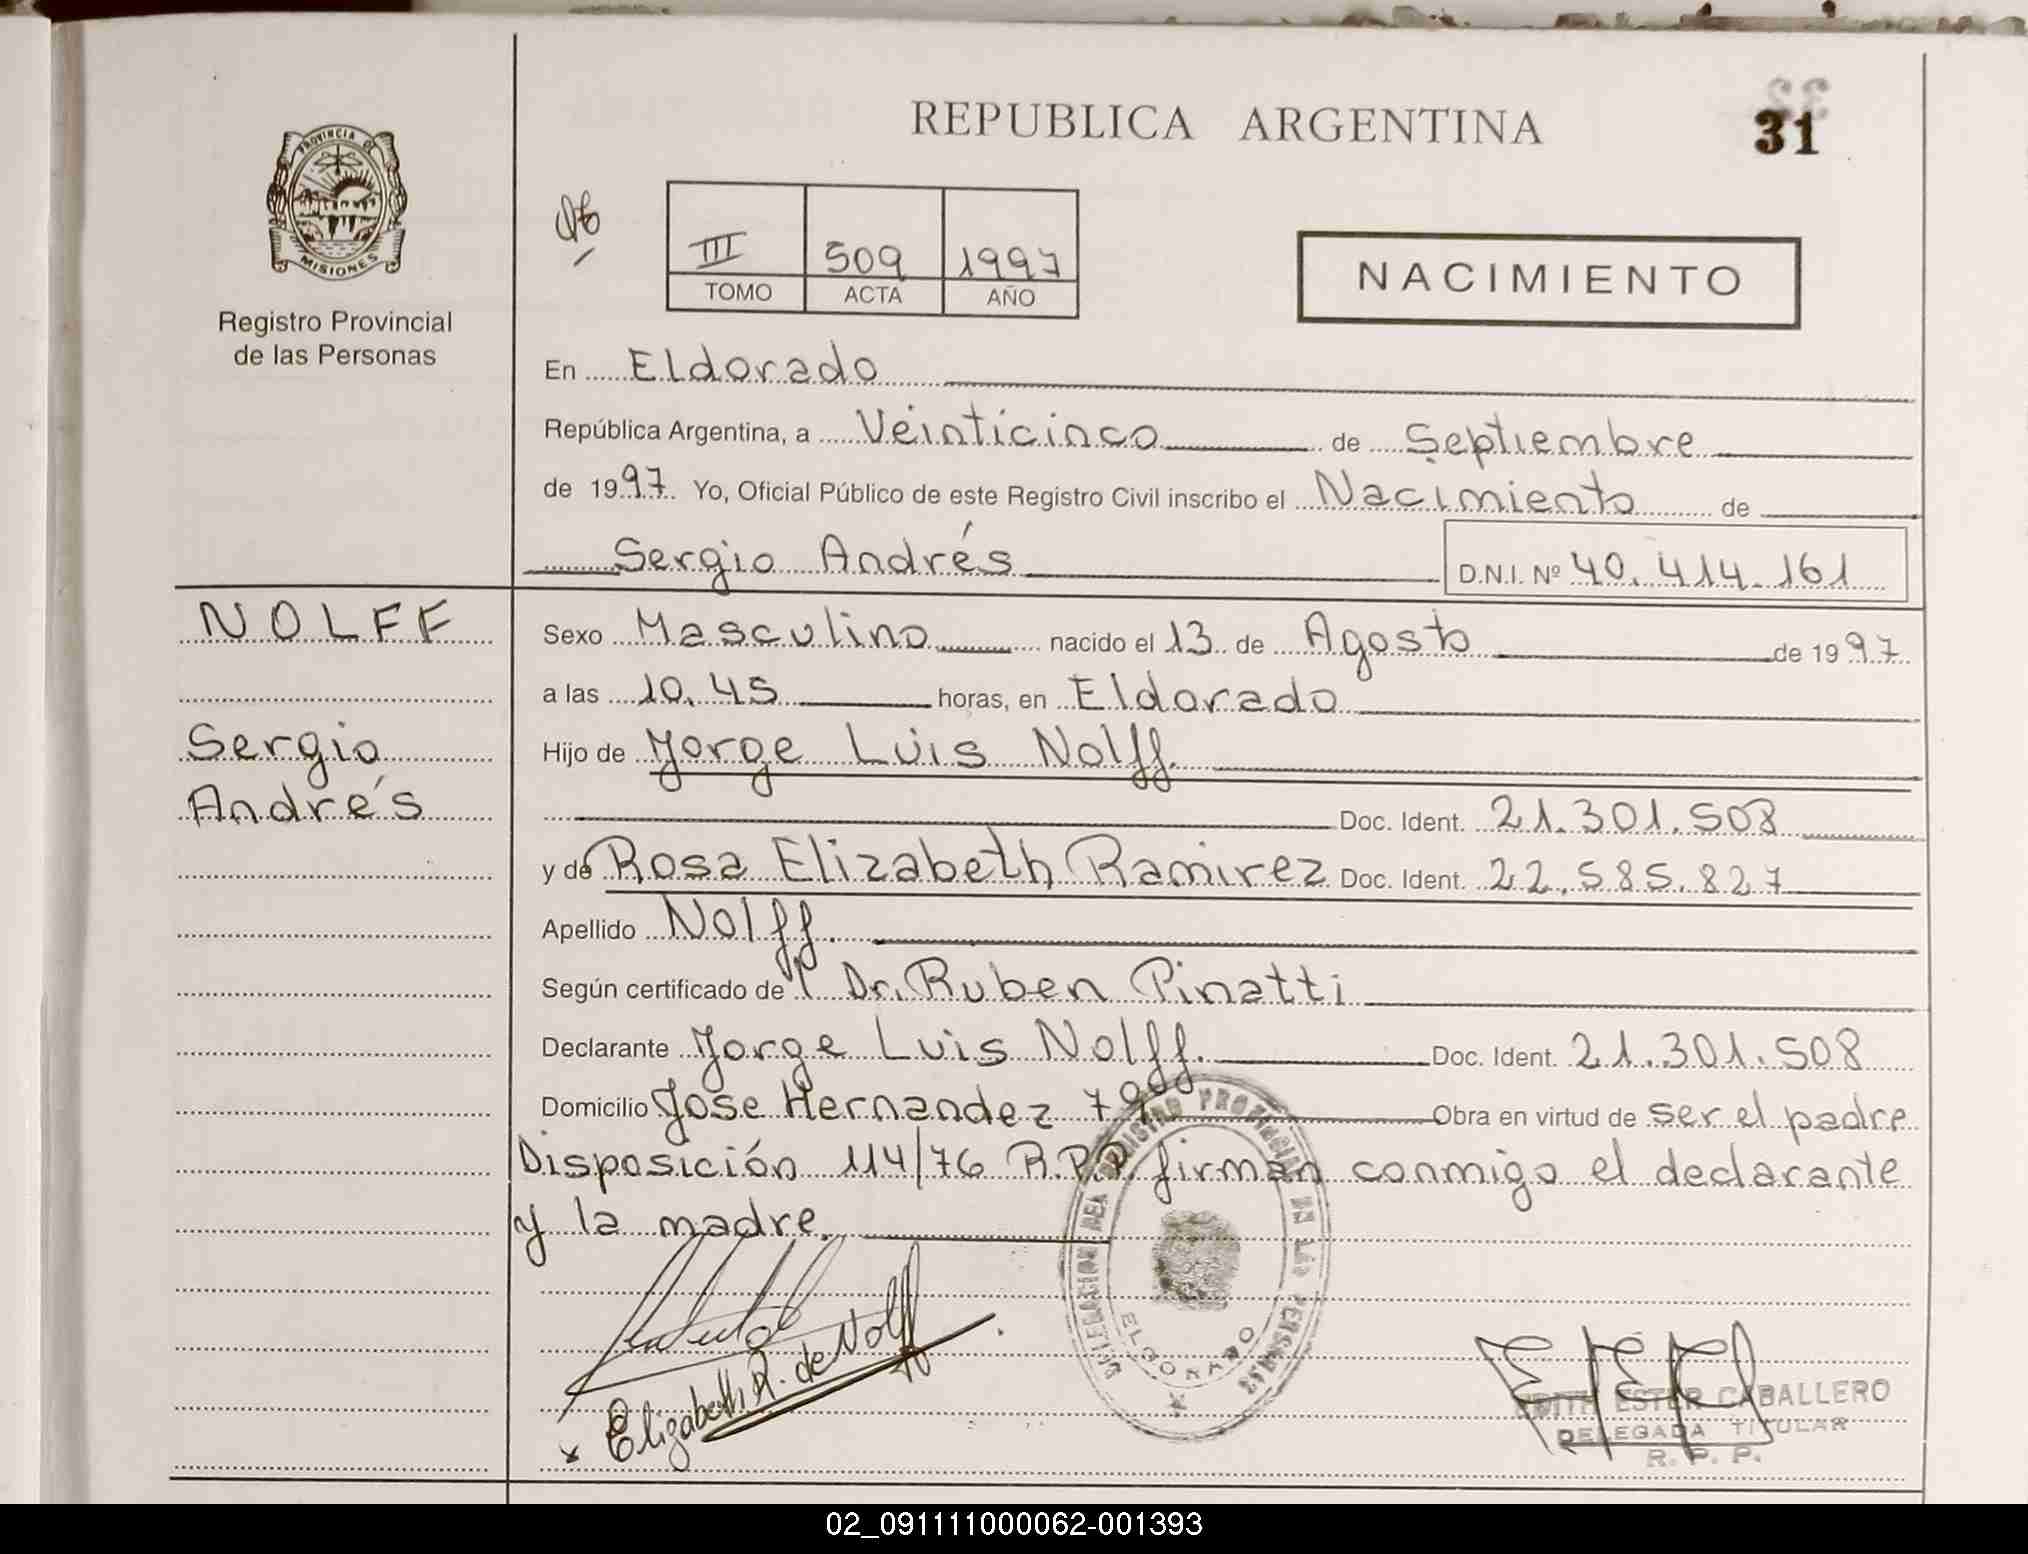 REPUBLICA ARGENTINA
31
PROVINCIA DE
MISIONES
Registro Provincial
de las Personas
III 509 1997
TOMO ACTA AÑO
NACIMIENTO
En Eldorado
República Argentina, a Veinticinco de Septiembre
de 1997. Yo, Oficial Público de este Registro Civil inscribo el Nacimiento de
Sergio Andrés D.N.I. Nº 40.414.161
NOLFF
Sergio
Andrés
Sexo Masculino nacido el 13 de Agosto de 1997
a las 10.45 horas, en Eldorado
Hijo de Jorge Luis Nolff.
Doc. Ident. 21.301.508
y de Rosa Elizabeth Ramirez Doc. Ident. 22.585.827
Apellido Nolff.
Según certificado de Dr. Ruben Pinatti
Declarante Jorge Luis Nolff. Doc. Ident. 21.301.508
Domicilio Jose Hernandez Obra en virtud de ser el padre
Disposición 114/76 R.P.P. firman conmigo el declarante
y la madre.
DELEGACION DEL REGISTRO PROVINCIAL DE LAS PERSONAS
ELDORADO
Elizabeth R. de Nolff
EDITH ESTER CABALLERO
DELEGADA TITULAR
R. P. P.
02_091111000062-001393